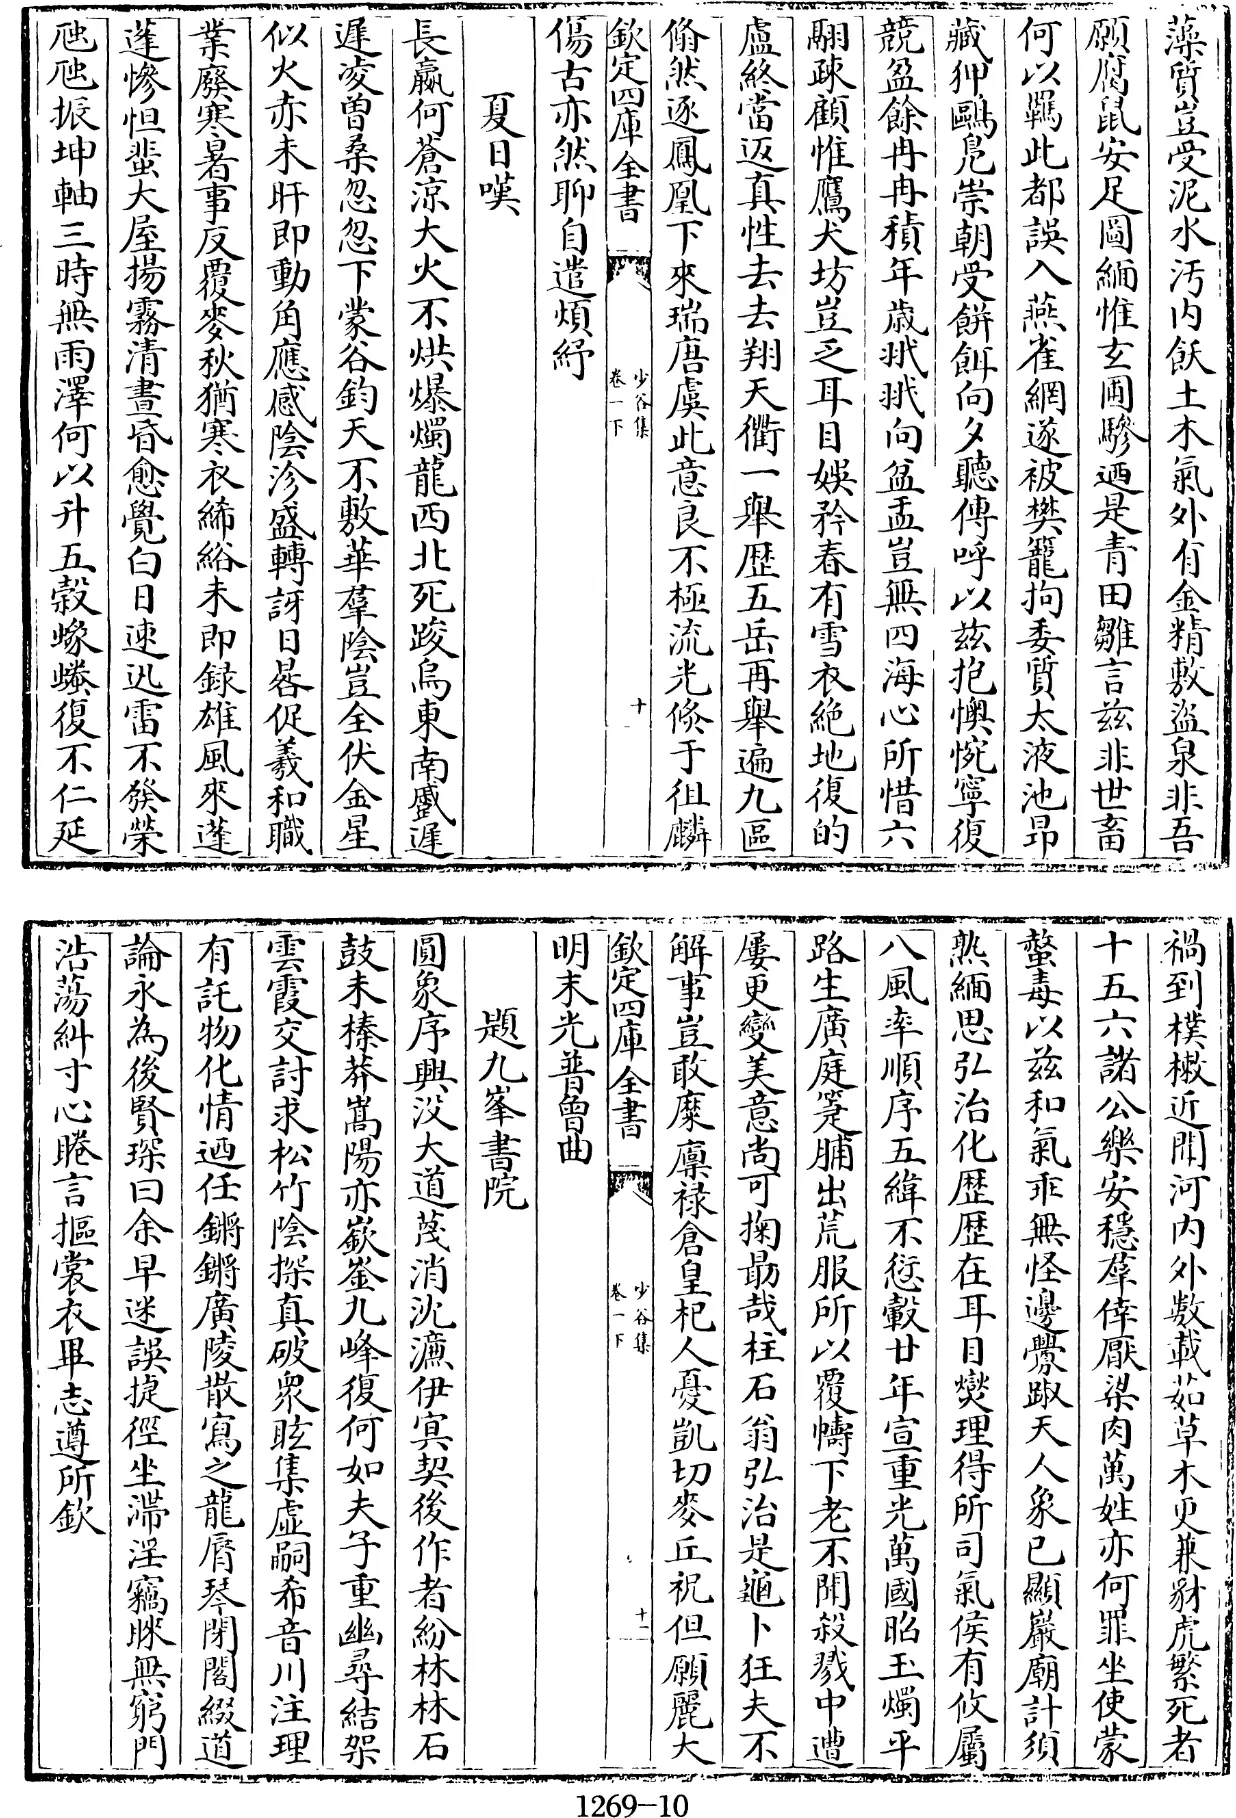 藻質豈受泥水汚内飫土木氣外有金精敷盜泉非吾
願腐鼠安足圖緬惟玄圃驂迺是青田雛言兹非世畜
何以羈此都誤入燕雀網遂被樊籠拘委質太液池昂
藏狎鷗鳬崇朝受餅餌向夕聽傳呼以兹抱懊惋寧復
競盈餘冉冉積年歳㦮㦮向盆盂豈無四海心所惜六
翮疎顧惟鷹犬坊豈乏耳目娛矜春有雪衣絶地復的
盧終當返真性去去翔天衢一舉歴五岳再舉遍九區
翛然逐鳳凰下來瑞唐虞此意良不極流光倐于徂麟
欽定四庫全書
少谷集
卷一下
十
傷古亦然聊自遣煩紆
夏日嘆
長嬴何蒼涼大火不烘爆燭龍西北死踆烏東南蹙遲
遲凌曽桑忽忽下蒙谷鈞天不敷華羣陰豈全伏金星
似火赤未肝即動角應感陰沴盛轉訝日晷促羲和職
業廢寒暑事反覆麥秋猶寒衣絺綌未即録雄風來蓬
蓬慘怛蜚大屋揚霧清晝昏愈覺白日速迅雷不發榮
虺虺振坤軸三時無雨澤何以升五榖蝝螽復不仁延
禍到樸樕近聞河内外數載茹草木更兼豺虎繁死者
十五六諸公樂安穩羣倖厭梁肉萬姓亦何罪坐使蒙
螫毒以兹和氣乖無怪邊釁踧天人象已顯巖廟計須
熟緬思弘治化歴歴在耳目爕理得所司氣侯有攸屬
八風率順序五緯不愆轂廿年宣重光萬國昭玉燭平
路生廣庭箑脯出荒服所以覆幬下老不聞殺戮中遭
屢更變美意尚可掬勗哉柱石翁弘治是龜卜狂夫不
解事豈敢糜廪禄倉皇杞人憂凱切麥丘祝但願麗大
欽定四庫全書
少谷集
卷一下
十一
明末光普曾曲
題九峯書院
圓象序興没大道茂消沈濂伊冥契後作者紛林林石
鼓未榛莽嵩陽亦嶔崟九峰復何如夫子重幽尋結架
雲霞交討求松竹陰探真破衆眩集虚嗣希音川注理
有託物化情迺任鏘鏘廣陵散寫之龍脣琴閉閣綴道
論永為後賢琛曰余早迷誤捷徑坐滯淫竊睇無窮門
浩蕩糾寸心睠言摳裳衣畢志遵所欽
1269-10